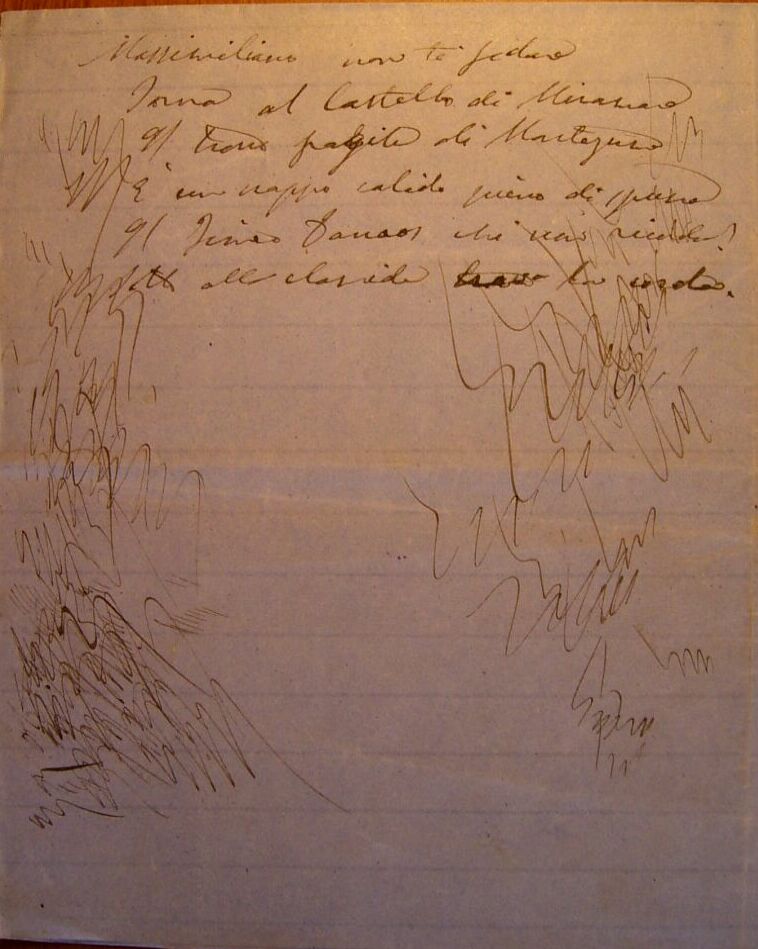 Massimiliano non ti fidare
Torna al Castello di Miramare
Il trono di Montezuma
È un nappo calido pieno di spuma
Il Timeo Danaos chi non ricorda?
clamide la corda.